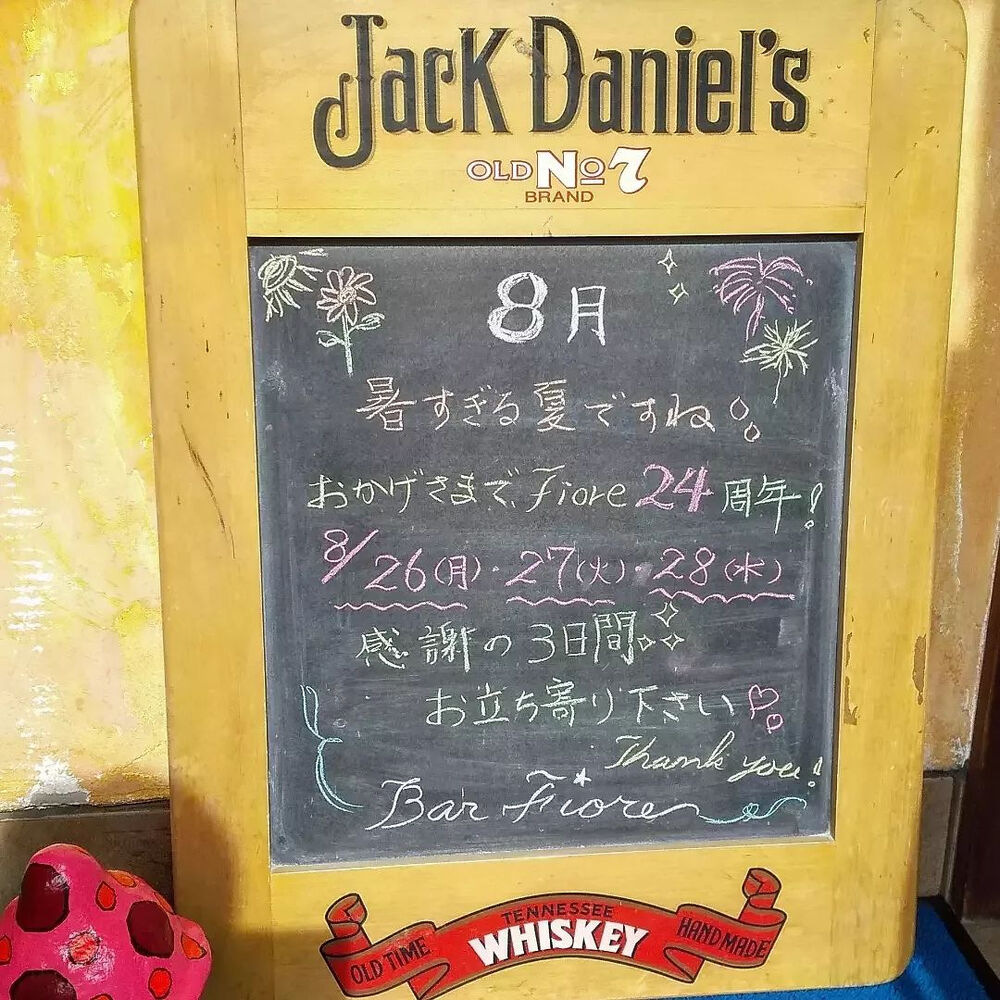 Jack Daniel's
OLD No 7
BRAND
8月
暑すぎる夏ですね
おかげさまで、Fiore 24周年!
8/26(月)・27(火)・28(水)
感謝の3日間
お立ち寄り下さい
Thank you!
Bar Fiore
TENNESSEE
OLD TIME WHISKEY HANDMADE